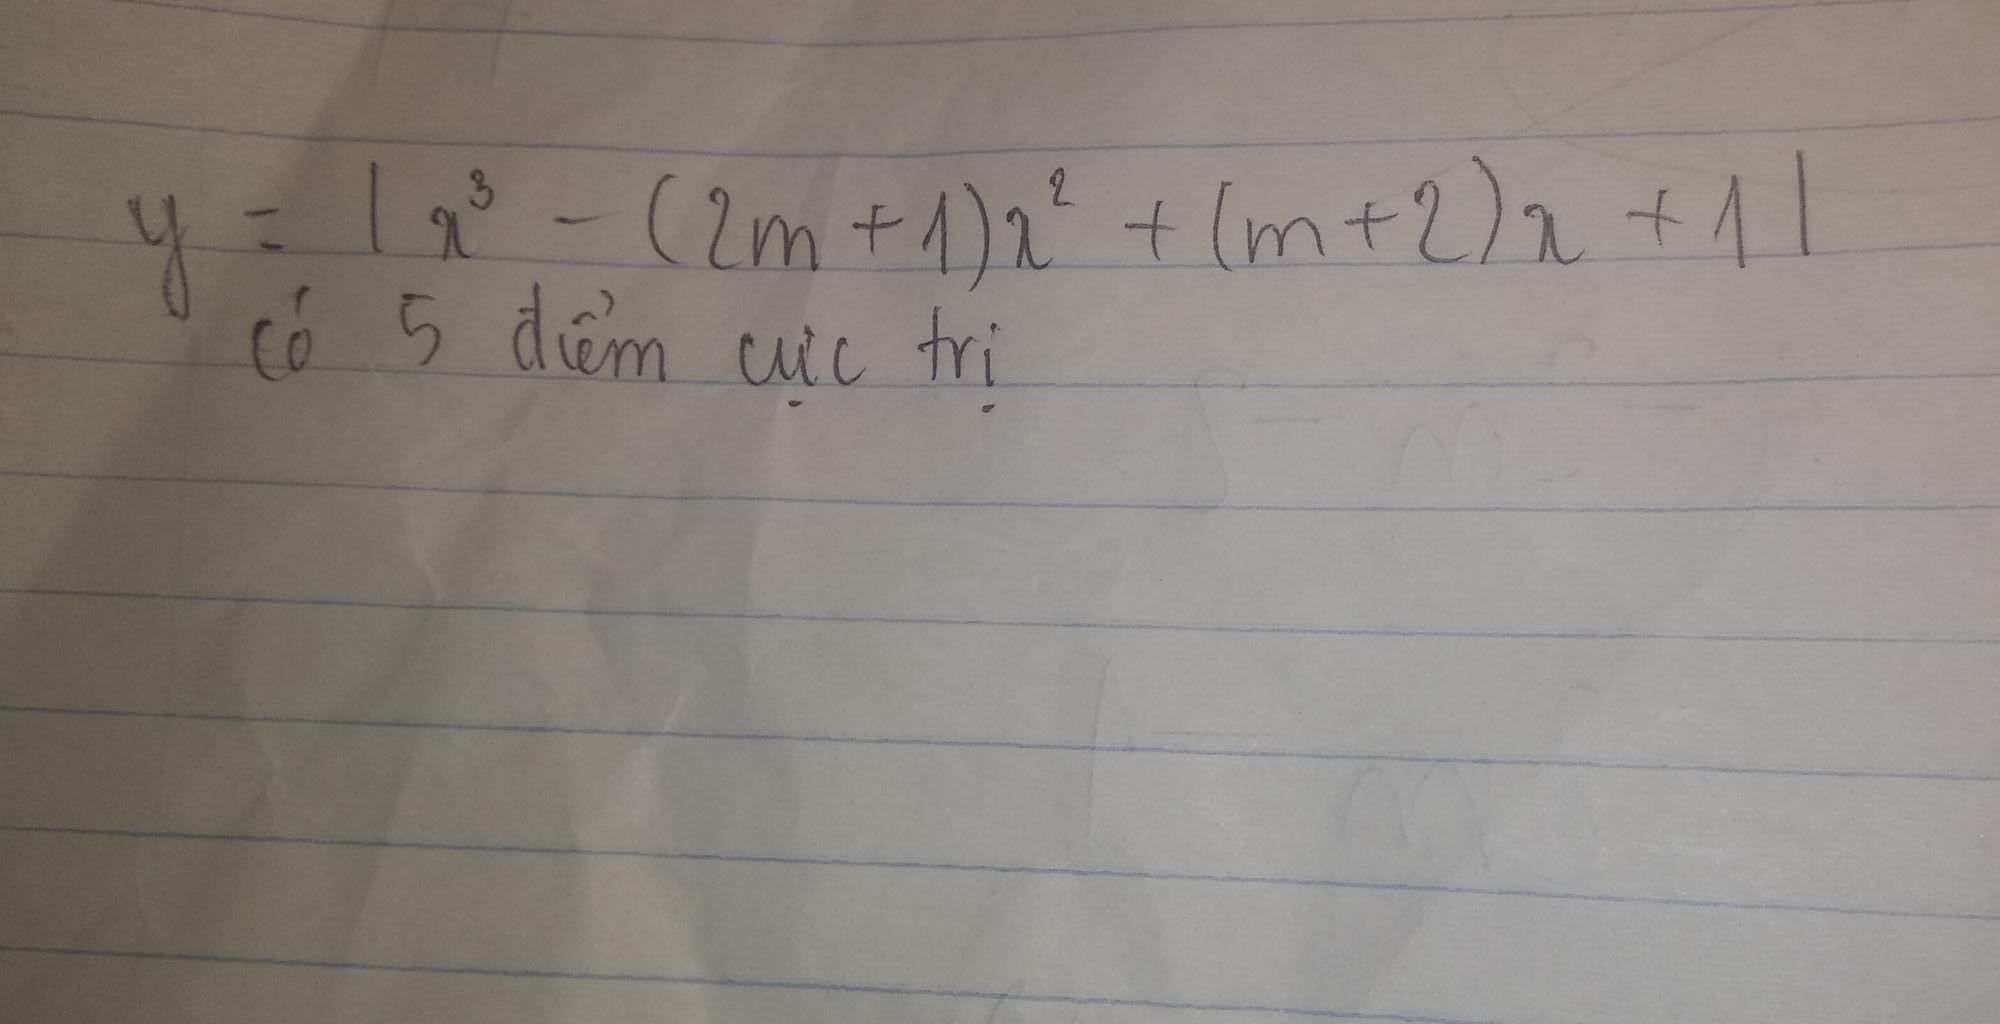 y = | x³ - (2m + 1)x² + (m + 2)x + 1 |
có 5 điểm cực trị